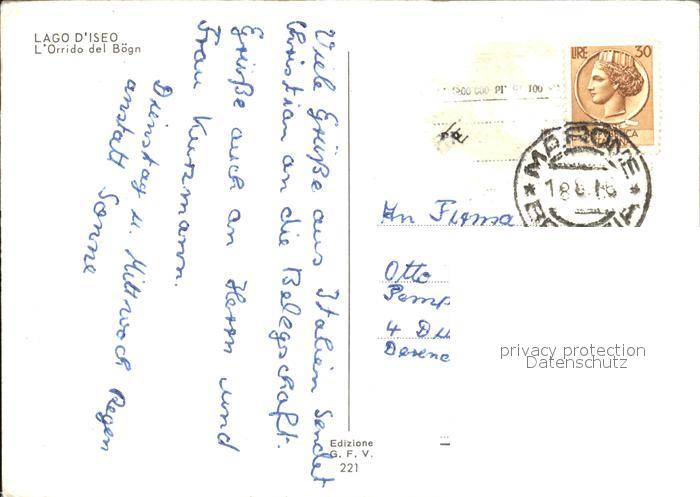 LAGO D'ISEO
L'Orrido del Bögn
Viele Grüße aus Italien sendet
Christian an die Belegschaft.
Grüße auch an Herrn und
Frau Kurzmann.
Dienstag u. Mittwoch Regen
anstatt Sonne
LIRE 30
MARONE
An Firma
Otto
4 Dü
privacy protection
Datenschutz
Edizione
G. F. V.
221